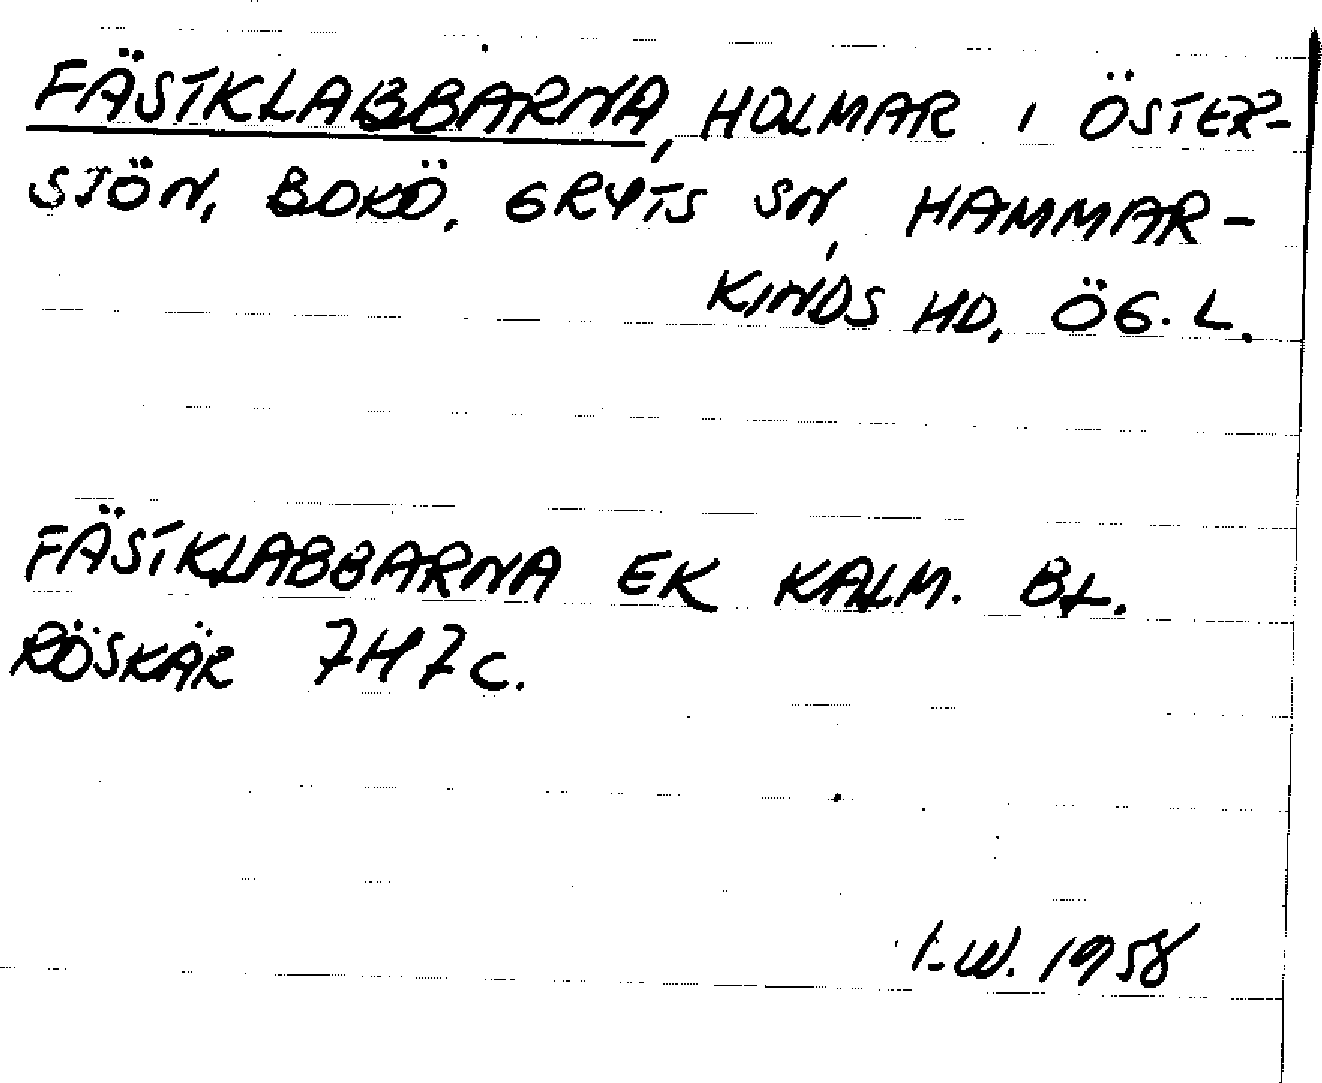 FÄSTKLABBARNA, HOLMAR I ÖSTER-
SJÖN, BOKÖ, GRYTS SN, HAMMAR-
KINDS HD, ÖG. L.
FÄSTKLABBARNA EK KALM. BL.
RÖSKÄR 7H7c.
I.W. 1958